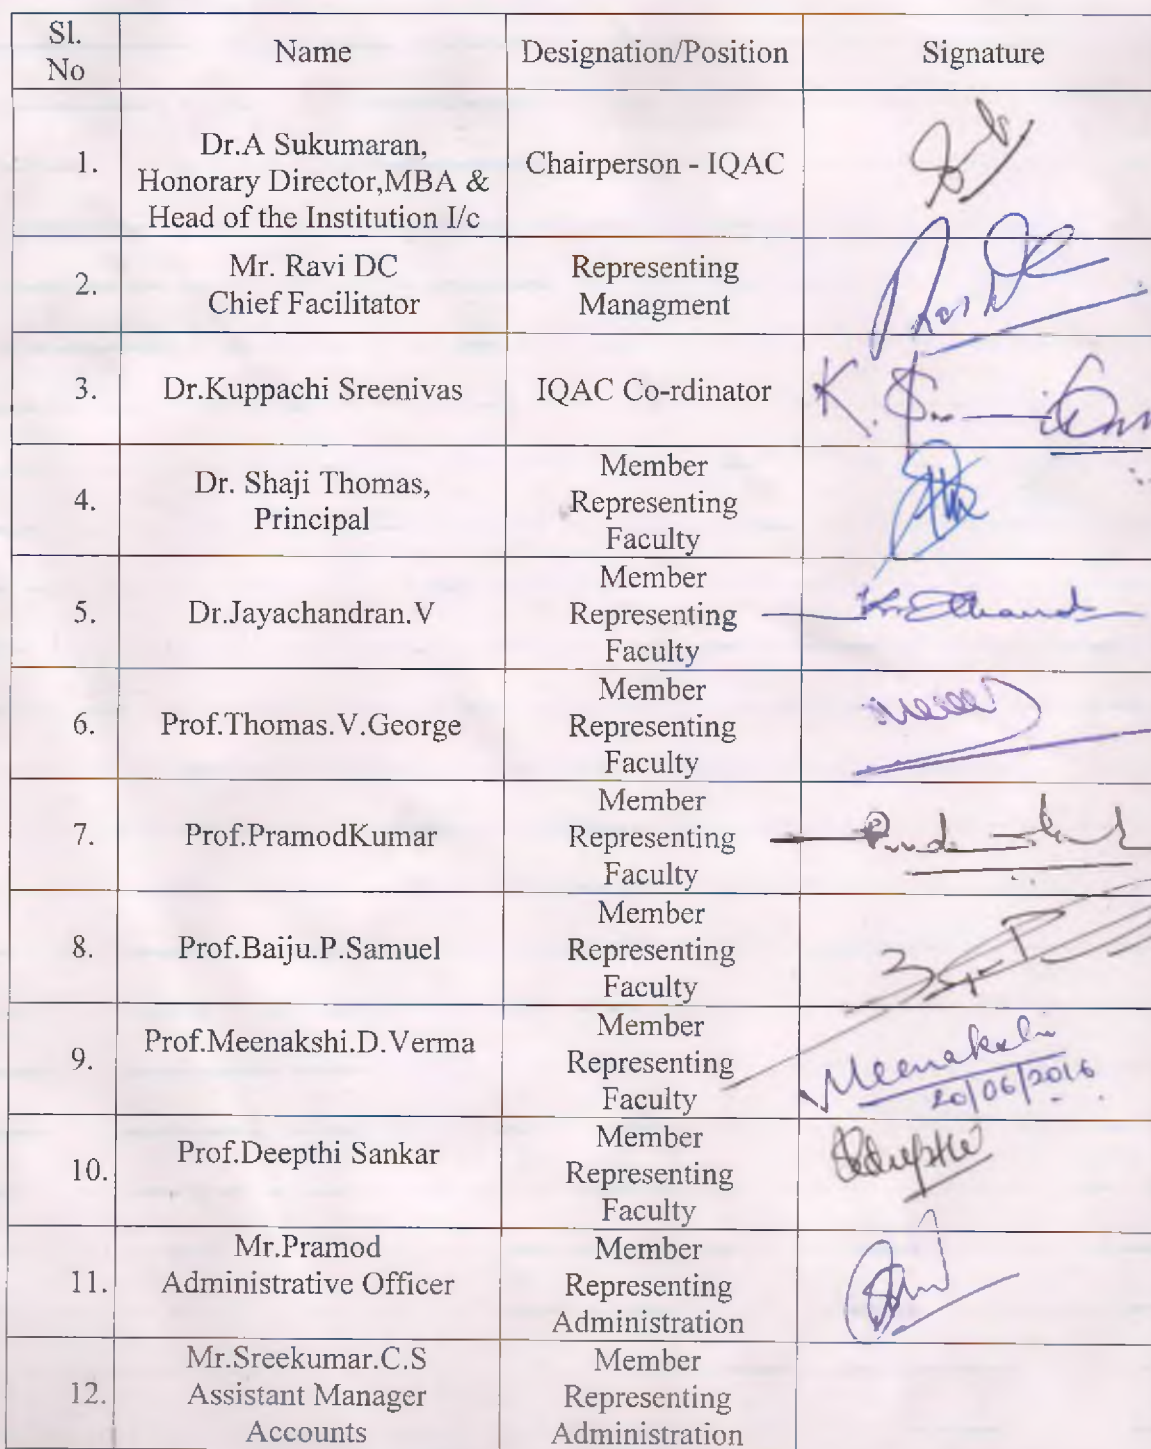 Sl.
No
Name
Designation/Position
Signature
1.
Dr.A Sukumaran,
Honorary Director,MBA &
Head of the Institution I/c
Chairperson - IQAC
2.
Mr. Ravi DC
Chief Facilitator
Representing
Managment
Ravi DC
3.
Dr.Kuppachi Sreenivas
IQAC Co-rdinator
4.
Dr. Shaji Thomas,
Principal
Member
Representing
Faculty
5.
Dr.Jayachandran.V
Member
Representing
Faculty
6.
Prof.Thomas.V.George
Member
Representing
Faculty
7.
Prof.PramodKumar
Member
Representing
Faculty
8.
Prof.Baiju.P.Samuel
Member
Representing
Faculty
9.
Prof.Meenakshi.D.Verma
Member
Representing
Faculty
Meenakshi
20/06/2016
10.
Prof.Deepthi Sankar
Member
Representing
Faculty
11.
Mr.Pramod
Administrative Officer
Member
Representing
Administration
12.
Mr.Sreekumar.C.S
Assistant Manager
Accounts
Member
Representing
Administration